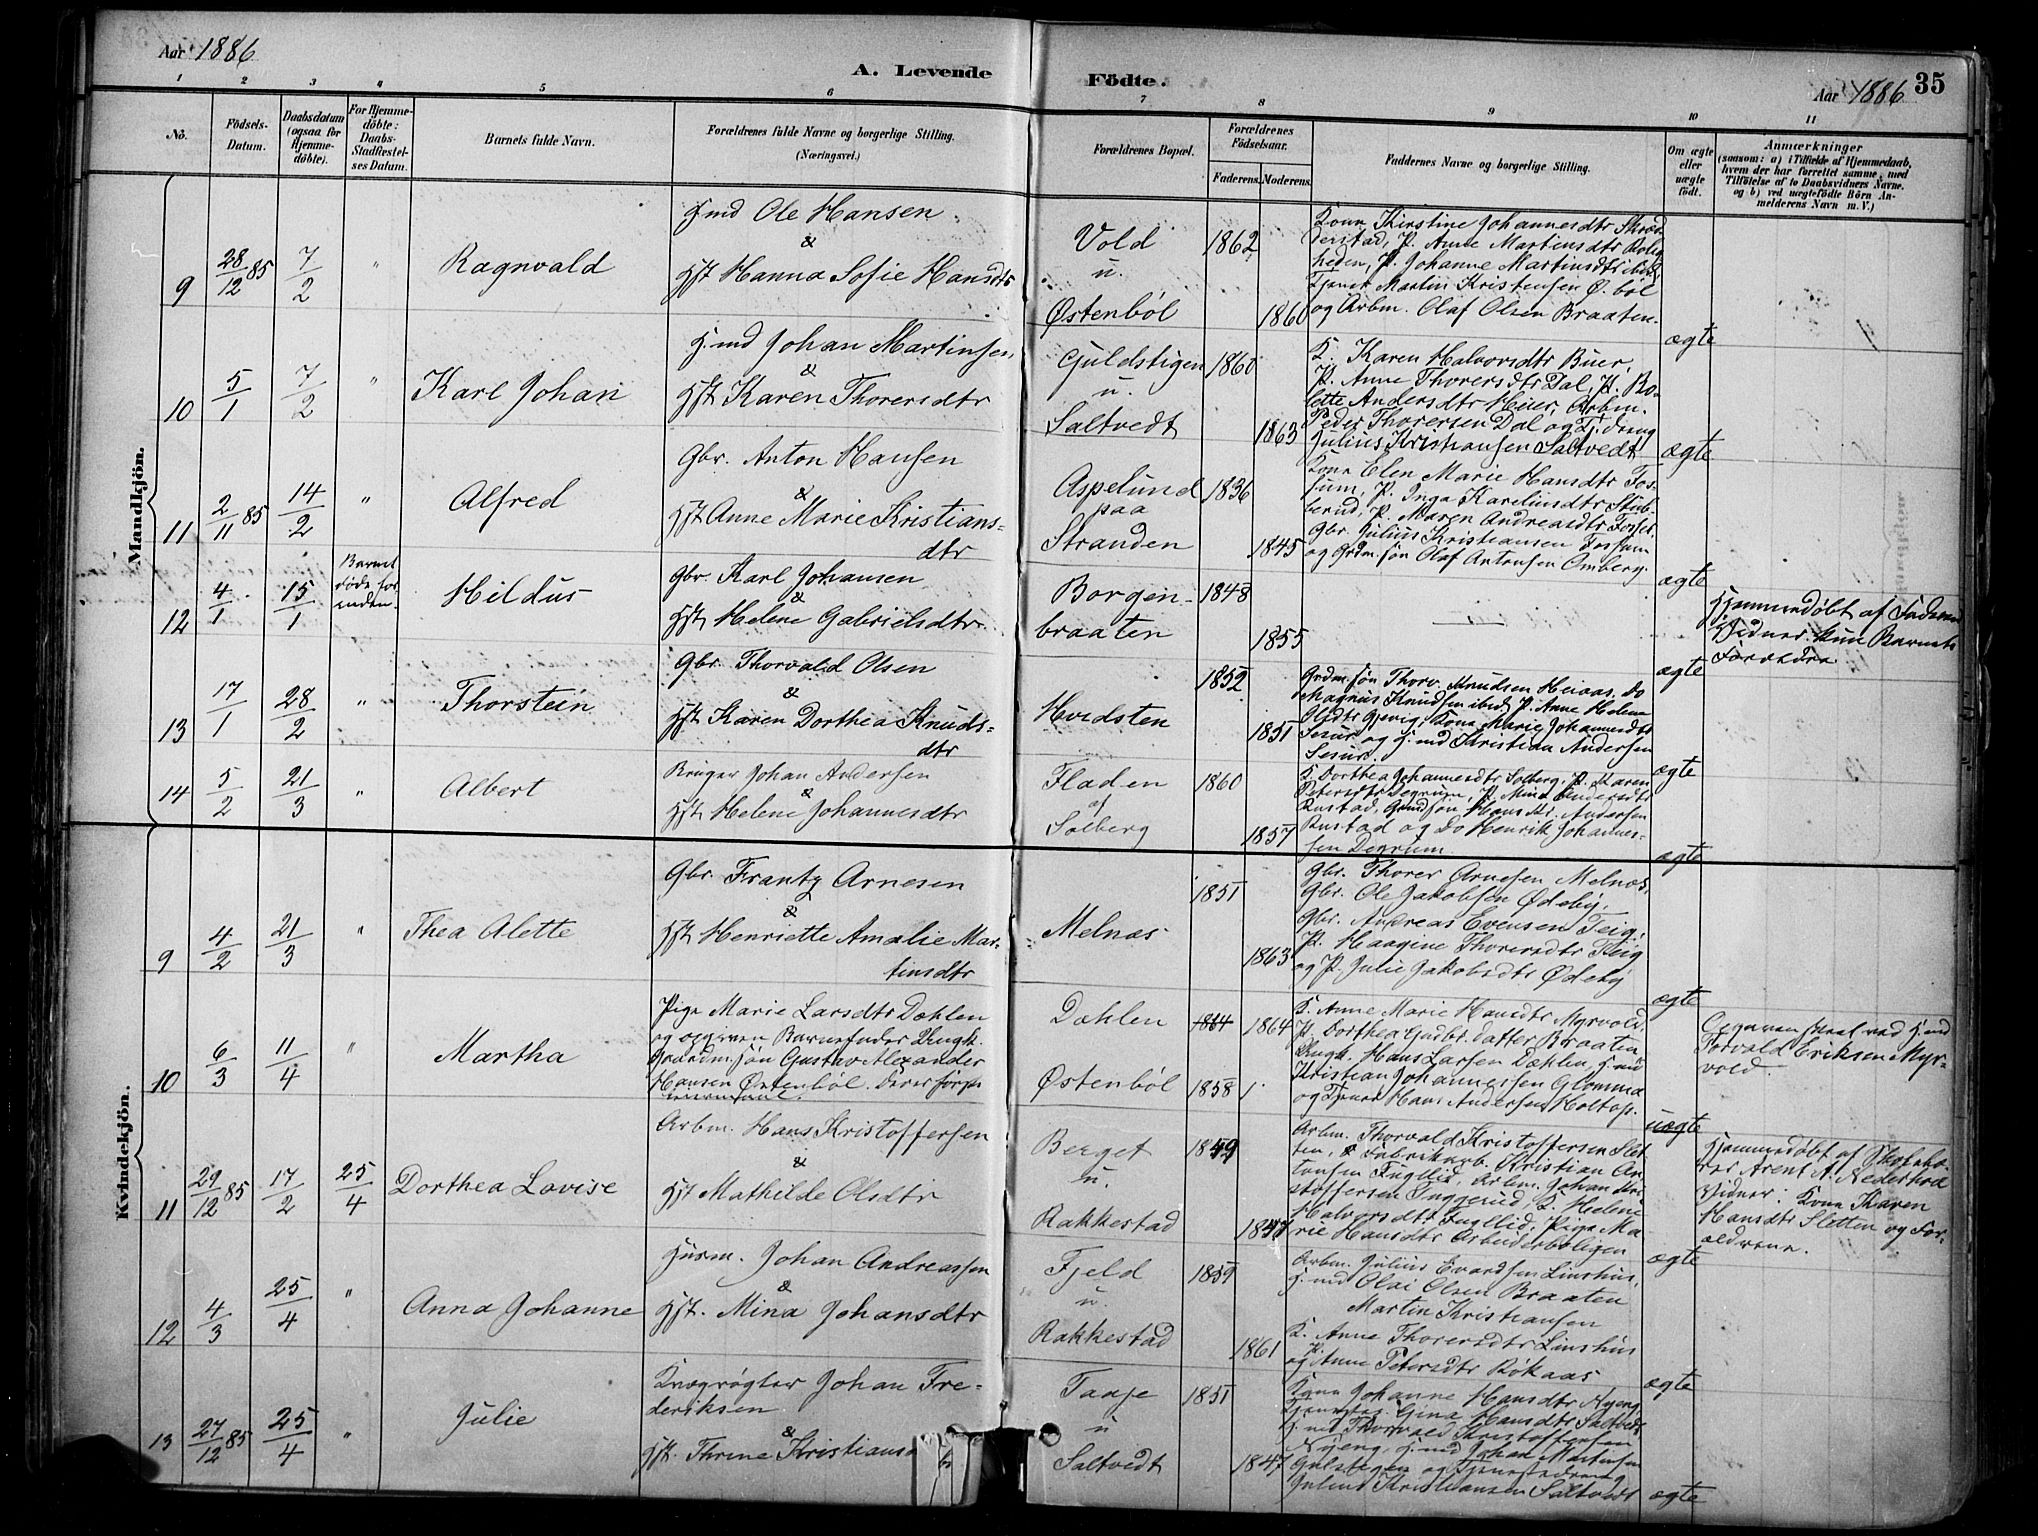 Aar 1886
A. Levende
Födte.
Aar 1886
35
1 2 3 4 5 6 7 8 9 10 11
Nö.
Födsels-
Datum.
Daabsdatum
(ogsaa for
Hjemme-
döbte).
For Hjemme-
döbte:
Daabs-
Stadfæstel-
ses Datum.
Barnets fulde Navn.
Forældrenes fulde Navne og borgerlige Stilling.
(Næringsvei.)
Forældrenes Bopæl.
Forældrenes
Födselsaar.
Faderens.
Moderens.
Faddernes Navne og borgerlige Stilling.
Om ægte
eller
uægte
födt.
Anmærkninger
(saasom: a) i Tilfælde af Hjemmedaab,
hvem der har forrettet samme, med
Tilföielse af to Daabsvidners Navne.
og b) ved uægtefödte Börn An-
melderens Navn m. V.)
Mandkjön.
9
28/12 85
7/2
"
Ragnvald
Hmd Ole Hansen
&
Hst Hanna Sofie Hansdtr
Vold
u.
Østenböl
1862
1860
Kona Kirstine Johannesdtr
P. Anne Martinsdtr
P. Johanne Martinsdtr ibid
Tjener Martin Kristensen Ø. böl
og Arbm. Olaf Olsen Braaten.
ægte
10
5/1
7/2
"
Karl Johan
H.md Johan Martinsen
&
Hst Karen Thorersdtr
Guldstigen
u.
Saltvedt
1860
1863
K. Karen Halvorsdtr Buer,
P. Anne Thorersdtr Dal, P. Bo-
lette Andersdtr Huer, Arbm.
Peder Thorersen Dal og Tj.dreng
Julius Kristiansen Saltvedt
ægte
11
2/11 85
14/2
"
Alfred
Gbr. Anton Hansen
&
Hst Anne Marie Kristians=
dtr
Aspelund
paa
Stranden
1836
1845
Kona Elen Marie Hansdtr Fos-
sum, P. Inga Karelinsdtr Stub-
berud, P. Maren Andreasdtr Fosser.
Gbr Julius Kristiansen Fossum
og Grdm.søn Olaf Antonsen Omberg.
ægte
12
4/1
15/1
Barnet
döde for
inden.
Hildus
Gbr. Karl Johansen
&
Hst. Helene Gabrielsdtr.
Borgen-
braaten
1848
1855
ægte
Hjemmedøbt af Faderen
Vidner kun Barnets
Forældre
13
17/1
28/2
"
Thorstein
Gbr. Thorvald Olsen
&
Hst Karen Dorthea Knuds=
dtr
Hvidsten
1852
1851
Grdm.søn Thorv. Knudsen Heiaas, Do
Magnus Knudsen ibid, P. Anne Helene
Olsdtr Gjevig, Kona Marie Johannesdtr
og H.md Kristian Andersen
ægte
14
5/2
21/3
"
Albert
Bruger Johan Andersen
Hst. Helene Johannesdtr
Fladen
af
Solberg
1860
1857
K. Dorthea Johannesdtr Solberg. P. Maren
Petersdtr Degrum, P. Mina Andersdtr
Rustad, Grmdsøn Hans Kr. Andersen
Rustad og Do Henrik Johannes-
sen Degrum
ægte
Kvindekjön.
9
4/2
21/3
"
Thea Alette
Gbr. Frantz Arnesen
&
Hst Henriette Amalie Mar-
tinsdtr
Melnæs
1851
1863
Gbr. Thorer Arnesen Melnæs,
Gbr. Ole Jakobsen Ødeby,
Gbr. Andreas Evensen Teig,
P. Haagine Thorersdtr Teig
og P. Julie Jakobsdtr Ødeby
ægte
10
6/3
11/4
"
Martha
Pige Marie Larsdtr Dæhlen
og opgiven Barnefader Ungk.
Gaardm.søn Gustav Alexander
Hansen Østenböl. Deres første
Dæhlen
Østenböl
1864
1864
1858
K. Anne Marie Hansdtr Myrvold.
P. Dorthea Gudbr.datter Braaten,
Ungk. Hans Larsen Dæhlen, H.md
Kristian Johannessen Glomma
og Tjener Hans Andersen Holtop.
uægte
H.md
Torvald Eriksen Myr-
vold.
11
29/12 85
17/2
25/4
Dorthea Lovise
Arbm. Hans Kristoffersen
&
Hst Mathilde Olsdtr
Berget
u.
Rakkestad
1849
Arbm. Thorvald Kristoffersen Slet-
ten, Fabrikarb. Kristian An-
tonsen Fugllid, Arbm. Johan Kri-
stoffersen Inggerud, K. Helene
Halvorsdtr Fuglli, Pige Ma-
rie Hansdtr Arbeiderboligen
ægte
Hjemmedøbt af Skolehol-
rer Arent A.
Vidner: Kona Karen
Hansdtr Sletten og For-
ældrene.
12
4/3
25/4
"
Anna Johanne
Husm. Johan Andreassen
&
Hst. Mina Johansdtr
Fjeld
u.
Rakkestad
1859
1861
Arbm. Julius Evardsen Linshus,
H.md Olai Olsen Braaten
Martin Kristiansen
K. Anne Thorersdtr Linshus
og P. Anne Petersdtr Bökaas
ægte
13
27/12 85
25/4
"
Julie
Kvægrögter Johan Fre-
deriksen
&
Hst. Thrine Kristians
Taaje
u
Saltvedt
1851
1847
Kona Johanne Hansdtr Nyeng
Tjenestep. Gina Hansdtr Saltvedt
H.md Thorvald Kristoffersen
Nyeng, H.md Johan Martinsen
Gulstigen og Tjenestedreng
Julius Kristiansen Saltvedt
ægte